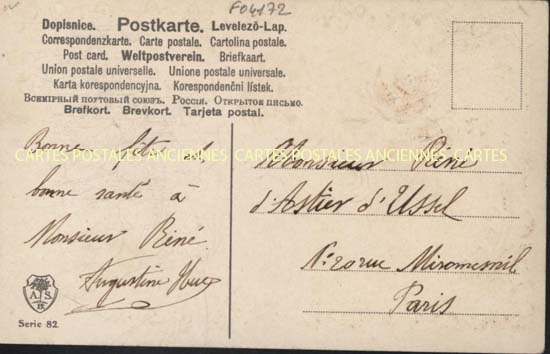 F04172
Dopisnice. Postkarte. Levelező-Lap.
Correspondenzkarte. Carte postale. Cartolina postale.
Post card. Weltpostverein. Briefkaart.
Union postale universelle. Unione postale universale.
Karta korespondencyjna. Korespondenční lístek.
Всемірный почтовый союзъ. Россія. Открытое письмо.
Brefkort. Brevkort. Tarjeta postal.
Bonne fête et
CARTES POSTALES ANCIENNES CARTES POSTALES ANCIENNES CARTES
bonne santé à
Monsieur Réné
Augustine
A. S.
Serie 82.
Monsieur Réné
d'Astier d'Ussel
20 rue Miromesnil
Paris